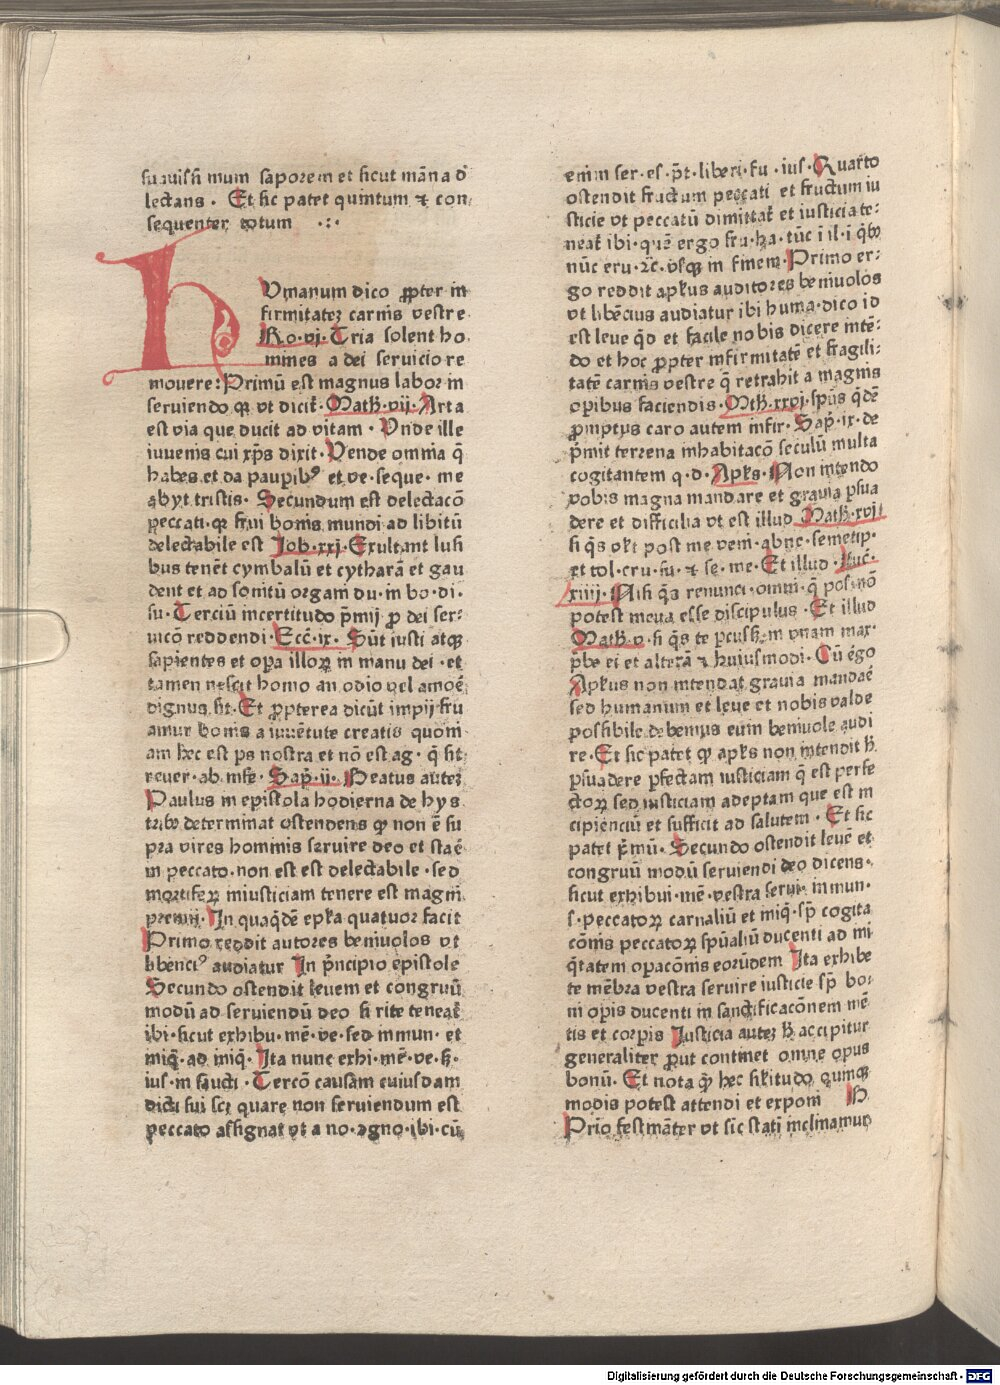 suauissi mum saporem et sicut manna d
lectans · Et sic patet quintum ⁊ con
sequenter totum ·:·
HUmanum dico ꝓpter in
firmitatez carnis vestre
Ro·vj· Tria solent ho
mines a dei seruicio re
mouere: Primū est magnus labor in
seruiendo qꝛ vt dicit̄· Math̄·vij· Arta
est via que ducit ad vitam · Vnde ille
iuuenis cui xp̄s dixit · Vende omnia q̄
habes et da paupib⁹ et ve·seque· me
abyt tristis· Secundum est delectacō
peccati·qꝛ frui bonis mundi ad libitū
delectabile est Job·xxj· Exultant lusi
bus tenēt cymbalū et cytharā et gau
dent et ad sonitū organi du·in bo·di·
su· Terciū incertitudo p̄mij ꝓ dei ser
uicō reddendi· Ecc̄·ix· Sūt iusti atqꝫ
sapientes et oꝑa illoꝝ in manu dei · et
tamen nescit homo an odio vel amoē
dignus sit· Et ꝓpterea dicūt impij fru
amur bonis a iuuētute creatis quoni
am hec est ps nostra et nō est ag· q̄ sit
reuer·ab·nise· Sap̄·ij· Beatus autez
Paulus in epistola hodierna de hys
tribꝫ determinat ostendens qꝙ non ē su
pra vires hominis seruire deo et staē
in peccato·non est est delectabile·sed
mortiferꝝ iniusticiam tenere est magni
premij· In quaqd̄e epl̄a quatuor facit
Primo reddit autores beniuolos vt
libenci⁹ audiatur In p̄ncipio epistole
Secundo ostendit leuem et congruū
modū ad seruiendū deo si rite teneat̄
ibi·sicut exhibu·mē·ve·sed inmun· et
miq̄·ad iniq̄· Ita nunc exhi·mē·ve·ẜ·
ius·in sancti· Tercō causam cuiusdam
dicti sui scꝫ quare non seruiendum est
peccato assignat vt a no·agno·ibi·cū
enim ser·es·p̄t·liberi·fu·ius· Quarto
ostendit fructum peccati et fructum iu
sticie vt peccatū dimittat̄ et iusticia te:
neat̄ ibi·quē ergo fru·ha·tūc i il·i q̄bꝫ
nūc eru·⁊c̄·vsqꝫ in finem· Primo er:
go reddit apl̄us auditores beniuolos
vt libēcius audiatur ibi huma·dico id
est leue qd̄ et facile nobis dicere intē:
do et hoc ꝓpter infirmitatē et fragili:
tatē carnis vestre q̄ retrahit a magnis
opibus faciendis· Mth̄·xxvj· spūs qd̄e
ꝓmptus caro autem infir· Sap̄·ix·de
p̄mit terrena inhabitacō seculū multa
cogitantem q·d· Apl̄s· Non intendo
vobis magna mandare et grauia p̄sua
dere et difficilia vt est illud Math̄·xvj
si q̄s vlt post me veni·abne·semetip·
et tol·cru·su·⁊ se·me· Et illud Luc̄·
xiiij· Nisi q̄s renunci·omni·q̄ pos·nō
potest meus esse discipulus · Et illud
Math̄·v·si q̄s te p̄cuss·in vnam max·
p̄be ei et alterā ⁊ huiusmodi· Cū ēgo
Apl̄us non intendat grauia mandaē
sed humanum et leue et nobis valde
possibile debemus eum beniuole audi
re· Et sic patet qꝙ apl̄s non intendit h̄
p̄suadere p̄fectam iusticiam q̄ est perfe
ctoꝝ sed iusticiam adeptam que est in
cipienciū et sufficit ad salutem · Et sic
patet p̄mū· Secundo ostendit leuē et
congruū modū seruiendi deo dicens·
sicut exhibui·mē·vestra serui·inmun·
s·peccatoꝝ carnaliū et miq̄·sp̄ cogita
cōnis peccatoꝝ spūaliū ducenti ad mi
q̄tatem oꝑacōnis eorūdem Ita exhibe
te mēbra vestra seruire iusticie sp̄ bo:
ni oꝑis ducenti in sanctificacōnem mē
tis et corpis Justicia autez h̄ accipitur
generaliter ꝓut continet omne opus
bonū· Et nota qꝙ hec sil̄itudo qumqꝫ
modis potest attendi et exponi
Prīo festināter vt sic stati inclinamur